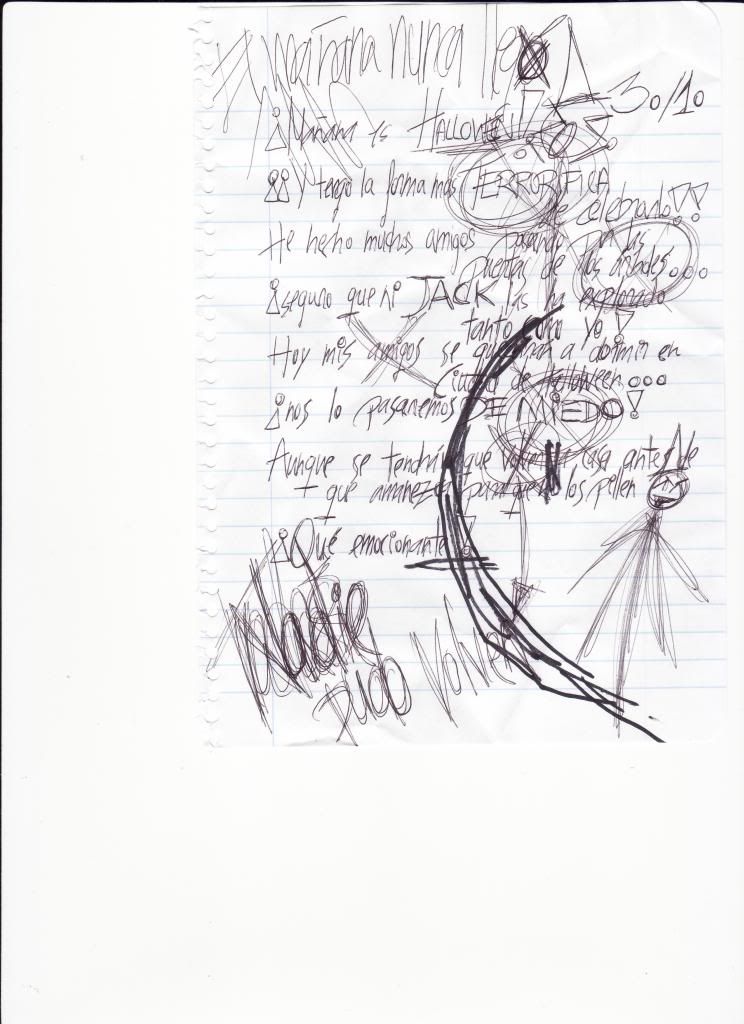 mañana nunca llegó
30/10
¡Mañana es HALLOWEEN!
¡¡Y tengo la forma más TERRORÍFICA
de celebrarlo!!
He hecho muchos amigos pasando por las
puertas de los árboles...
¡seguro que ni JACK las ha explorado
tanto como yo!
Hoy mis amigos se quedarán a dormir en
Ciudad de Halloween...
¡nos lo pasaremos DE MIEDO!
Aunque se tendrán que volver a casa antes de
que amanezca para que no los pillen
¡Qué emocionante!
Nadie
pudo volver